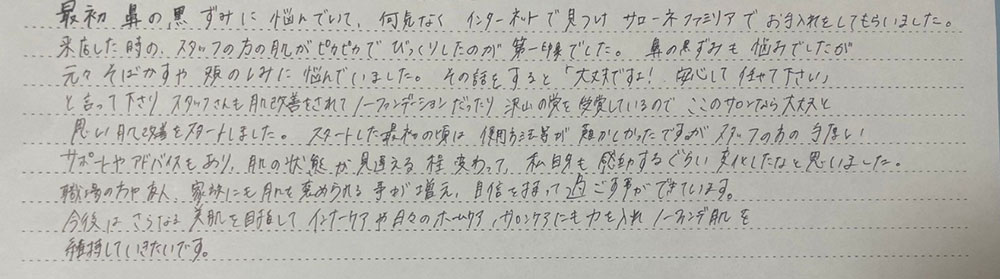 最初 鼻の黒ずみに悩んでいて、何気なく インターネットで見つけ サローネファミリアで お手入れをしてもらいました。
来店した時の、スタッフの方の肌がピカピカで びっくりしたのが 第一印象でした。 鼻の黒ずみも 悩みでしたが
元々 そばかすや 頬のしみに 悩んでいました。 その話をすると「大丈夫ですよ! 安心して 任せて下さい」
と言って下さり スタッフさんも 肌改善をされて ノーファンデーションだったり 沢山の賞を 受賞しているので ここのサロンなら大丈夫と
思い 肌改善をスタートしました。 スタートした最初の頃は 使用方法等が 難しかったですが スタッフの方の 手厚い
サポートや アドバイスもあり、肌の状態が 見違える 程 変わって、私自身も 感動するぐらい 変化したなと 思いました。
職場の方や 友人、家族にも 肌を 褒められる 事が 増え、自信を持って 過ごす事ができています。
今後は さらなる 美肌を目指して インナーケアや 日々のホームケア、サロンケアにも 力を入れ ノーファンデ肌を
維持していきたいです。